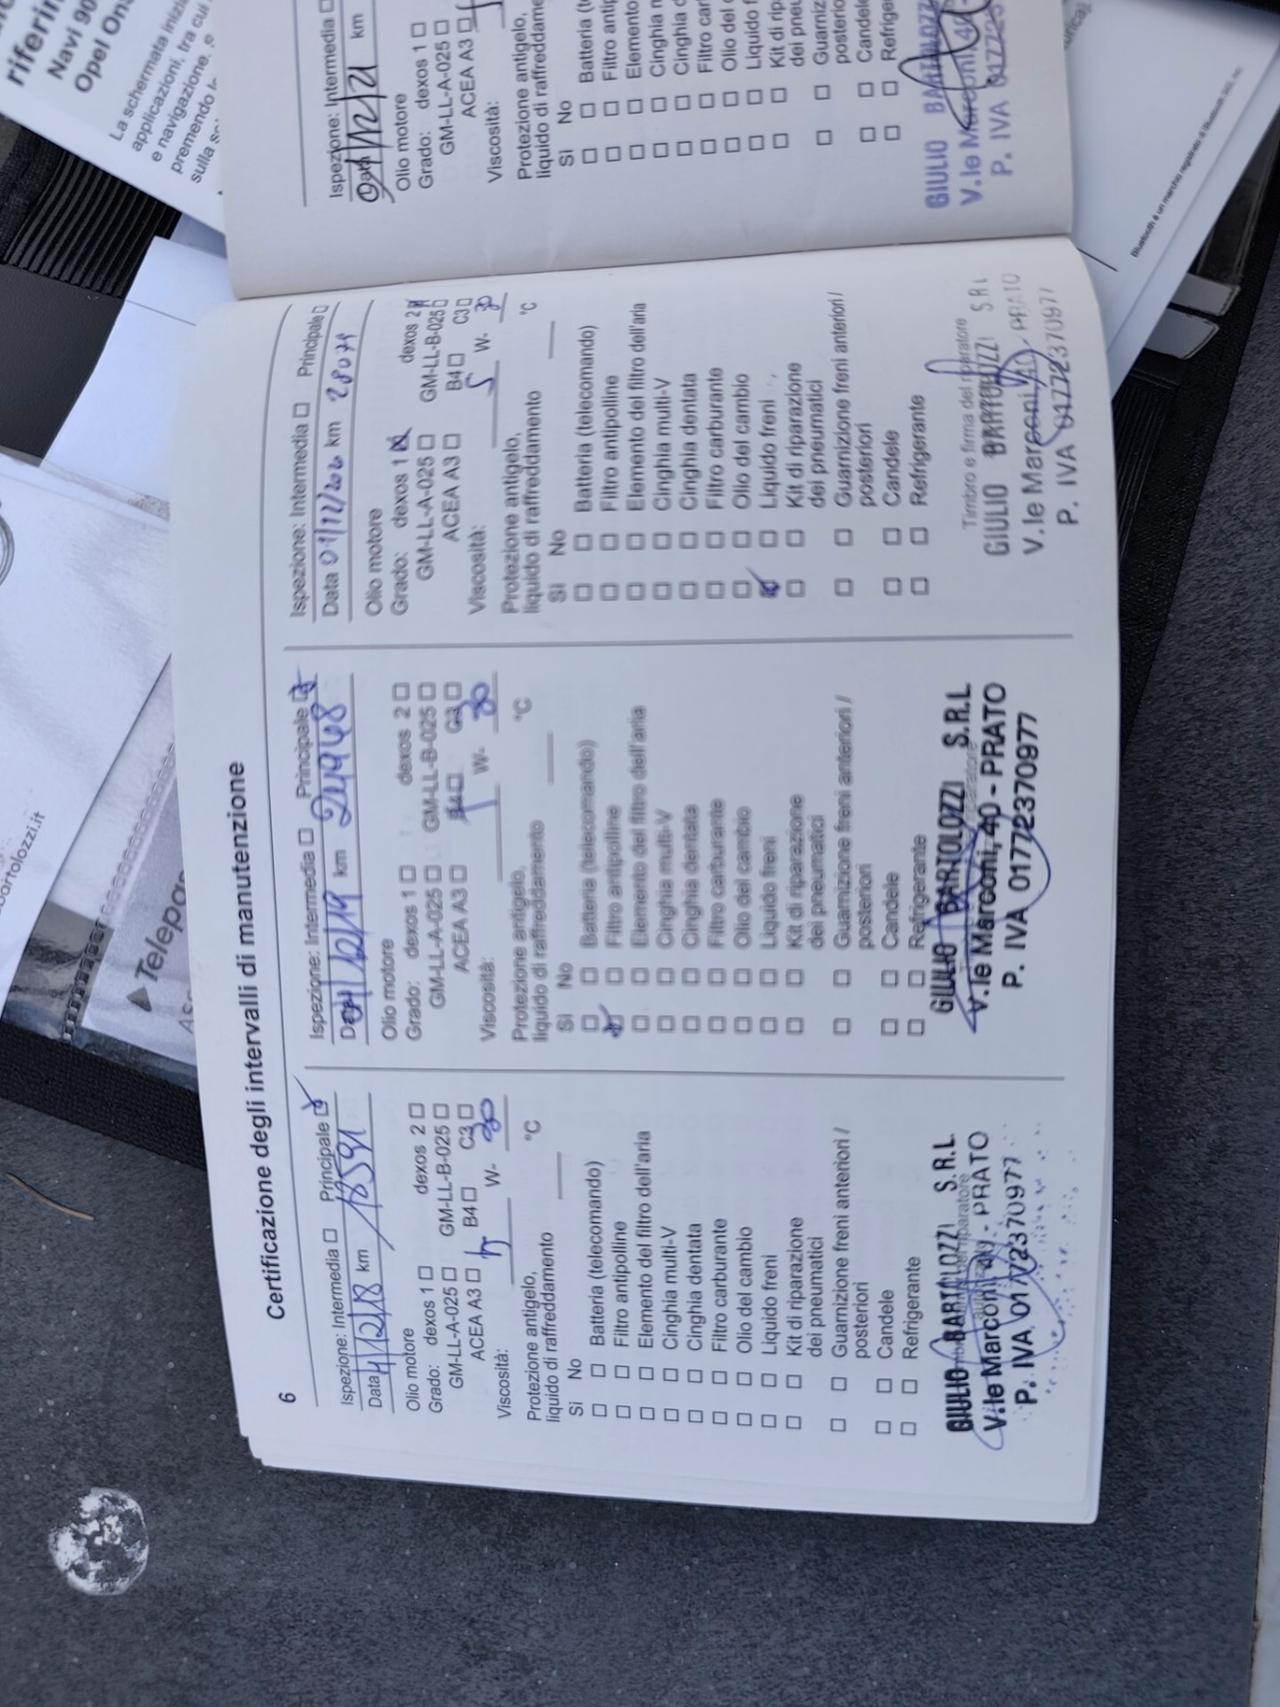 6 Certificazione degli intervalli di manutenzione
Ispezione: Intermedia ☐ Principale ☑
Data 4/12/18 km 18591
Olio motore
Grado: dexos 1 ☐ dexos 2 ☐
GM-LL-A-025 ☐ GM-LL-B-025 ☐
ACEA A3 ☐ B4 ☐ C3 ☐
Viscosità: W- 30
Protezione antigelo,
liquido di raffreddamento °C
Sì No
☐ ☐ Batteria (telecomando)
☐ ☐ Filtro antipolline
☐ ☐ Elemento del filtro dell'aria
☐ ☐ Cinghia multi-V
☐ ☐ Cinghia dentata
☐ ☐ Filtro carburante
☐ ☐ Olio del cambio
☐ ☐ Liquido freni
☐ ☐ Kit di riparazione
dei pneumatici
☐ ☐ Guarnizione freni anteriori /
posteriori
☐ ☐ Candele
☐ ☐ Refrigerante
GIULIO BARTOLOZZI S.R.L
V.le Marconi, 40 - PRATO
P. IVA 01772370977
Ispezione: Intermedia ☐ Principale ☑
/12/19 km 24968
Olio motore
Grado: dexos 1 ☐ dexos 2 ☐
GM-LL-A-025 ☐ GM-LL-B-025 ☐
ACEA A3 ☐ B4 ☐ C3 ☐
Viscosità: W- 30
Protezione antigelo,
liquido di raffreddamento °C
Sì No
☐ ☐ Batteria (telecomando)
☑ ☐ Filtro antipolline
☐ ☐ Elemento del filtro dell'aria
☐ ☐ Cinghia multi-V
☐ ☐ Cinghia dentata
☐ ☐ Filtro carburante
☐ ☐ Olio del cambio
☐ ☐ Liquido freni
☐ ☐ Kit di riparazione
dei pneumatici
☐ ☐ Guarnizione freni anteriori /
posteriori
☐ ☐ Candele
☐ ☐ Refrigerante
GIULIO BARTOLOZZI S.R.L
V.le Marconi, 40 - PRATO
P. IVA 01772370977
Ispezione: Intermedia ☐ Principale ☐
Data 01/12/20 km 28071
Olio motore
Grado: dexos 1 ☑ dexos 2 ☑
GM-LL-A-025 ☐ GM-LL-B-025 ☐
ACEA A3 ☐ B4 ☐ C3 ☐
Viscosità: 5 W- 30
Protezione antigelo,
liquido di raffreddamento °C
Sì No
☐ ☐ Batteria (telecomando)
☐ ☐ Filtro antipolline
☐ ☐ Elemento del filtro dell'aria
☐ ☐ Cinghia multi-V
☐ ☐ Cinghia dentata
☐ ☐ Filtro carburante
☐ ☐ Olio del cambio
☑ ☐ Liquido freni
☐ ☐ Kit di riparazione
dei pneumatici
☐ ☐ Guarnizione freni anteriori /
posteriori
☐ ☐ Candele
☐ ☐ Refrigerante
Timbro e firma del riparatore
GIULIO BARTOLOZZI S.R.L
V.le Marconi, 40 - PRATO
P. IVA 01772370977
Ispezione: Intermedia ☐
/12/21 km
Olio motore
Grado: dexos 1 ☐
GM-LL-A-025 ☐
ACEA A3 ☐
Viscosità:
Protezione antigelo,
liquido di raffreddame
Sì No
☐ ☐ Batteria (t
☐ ☐ Filtro antip
☐ ☐ Elemento
☐ ☐ Cinghia m
☐ ☐ Cinghia d
☐ ☐ Filtro car
☐ ☐ Olio del c
☐ ☐ Liquido f
☐ ☐ Kit di rip
dei pneu
☐ ☐ Guarniz
posterio
☐ ☐ Candele
☐ ☐ Refriger
GIULIO BARTOLOZZ
V.le Marconi, 40
P. IVA 017723
riferim
Navi 90
Opel On
La schermata inizia
applicazioni, tra cui
e navigazione, s
premendo
sulla
artolozzi.it
Telepa
Bluetooth è un marchio registrato di Bluetooth SIG, Inc.